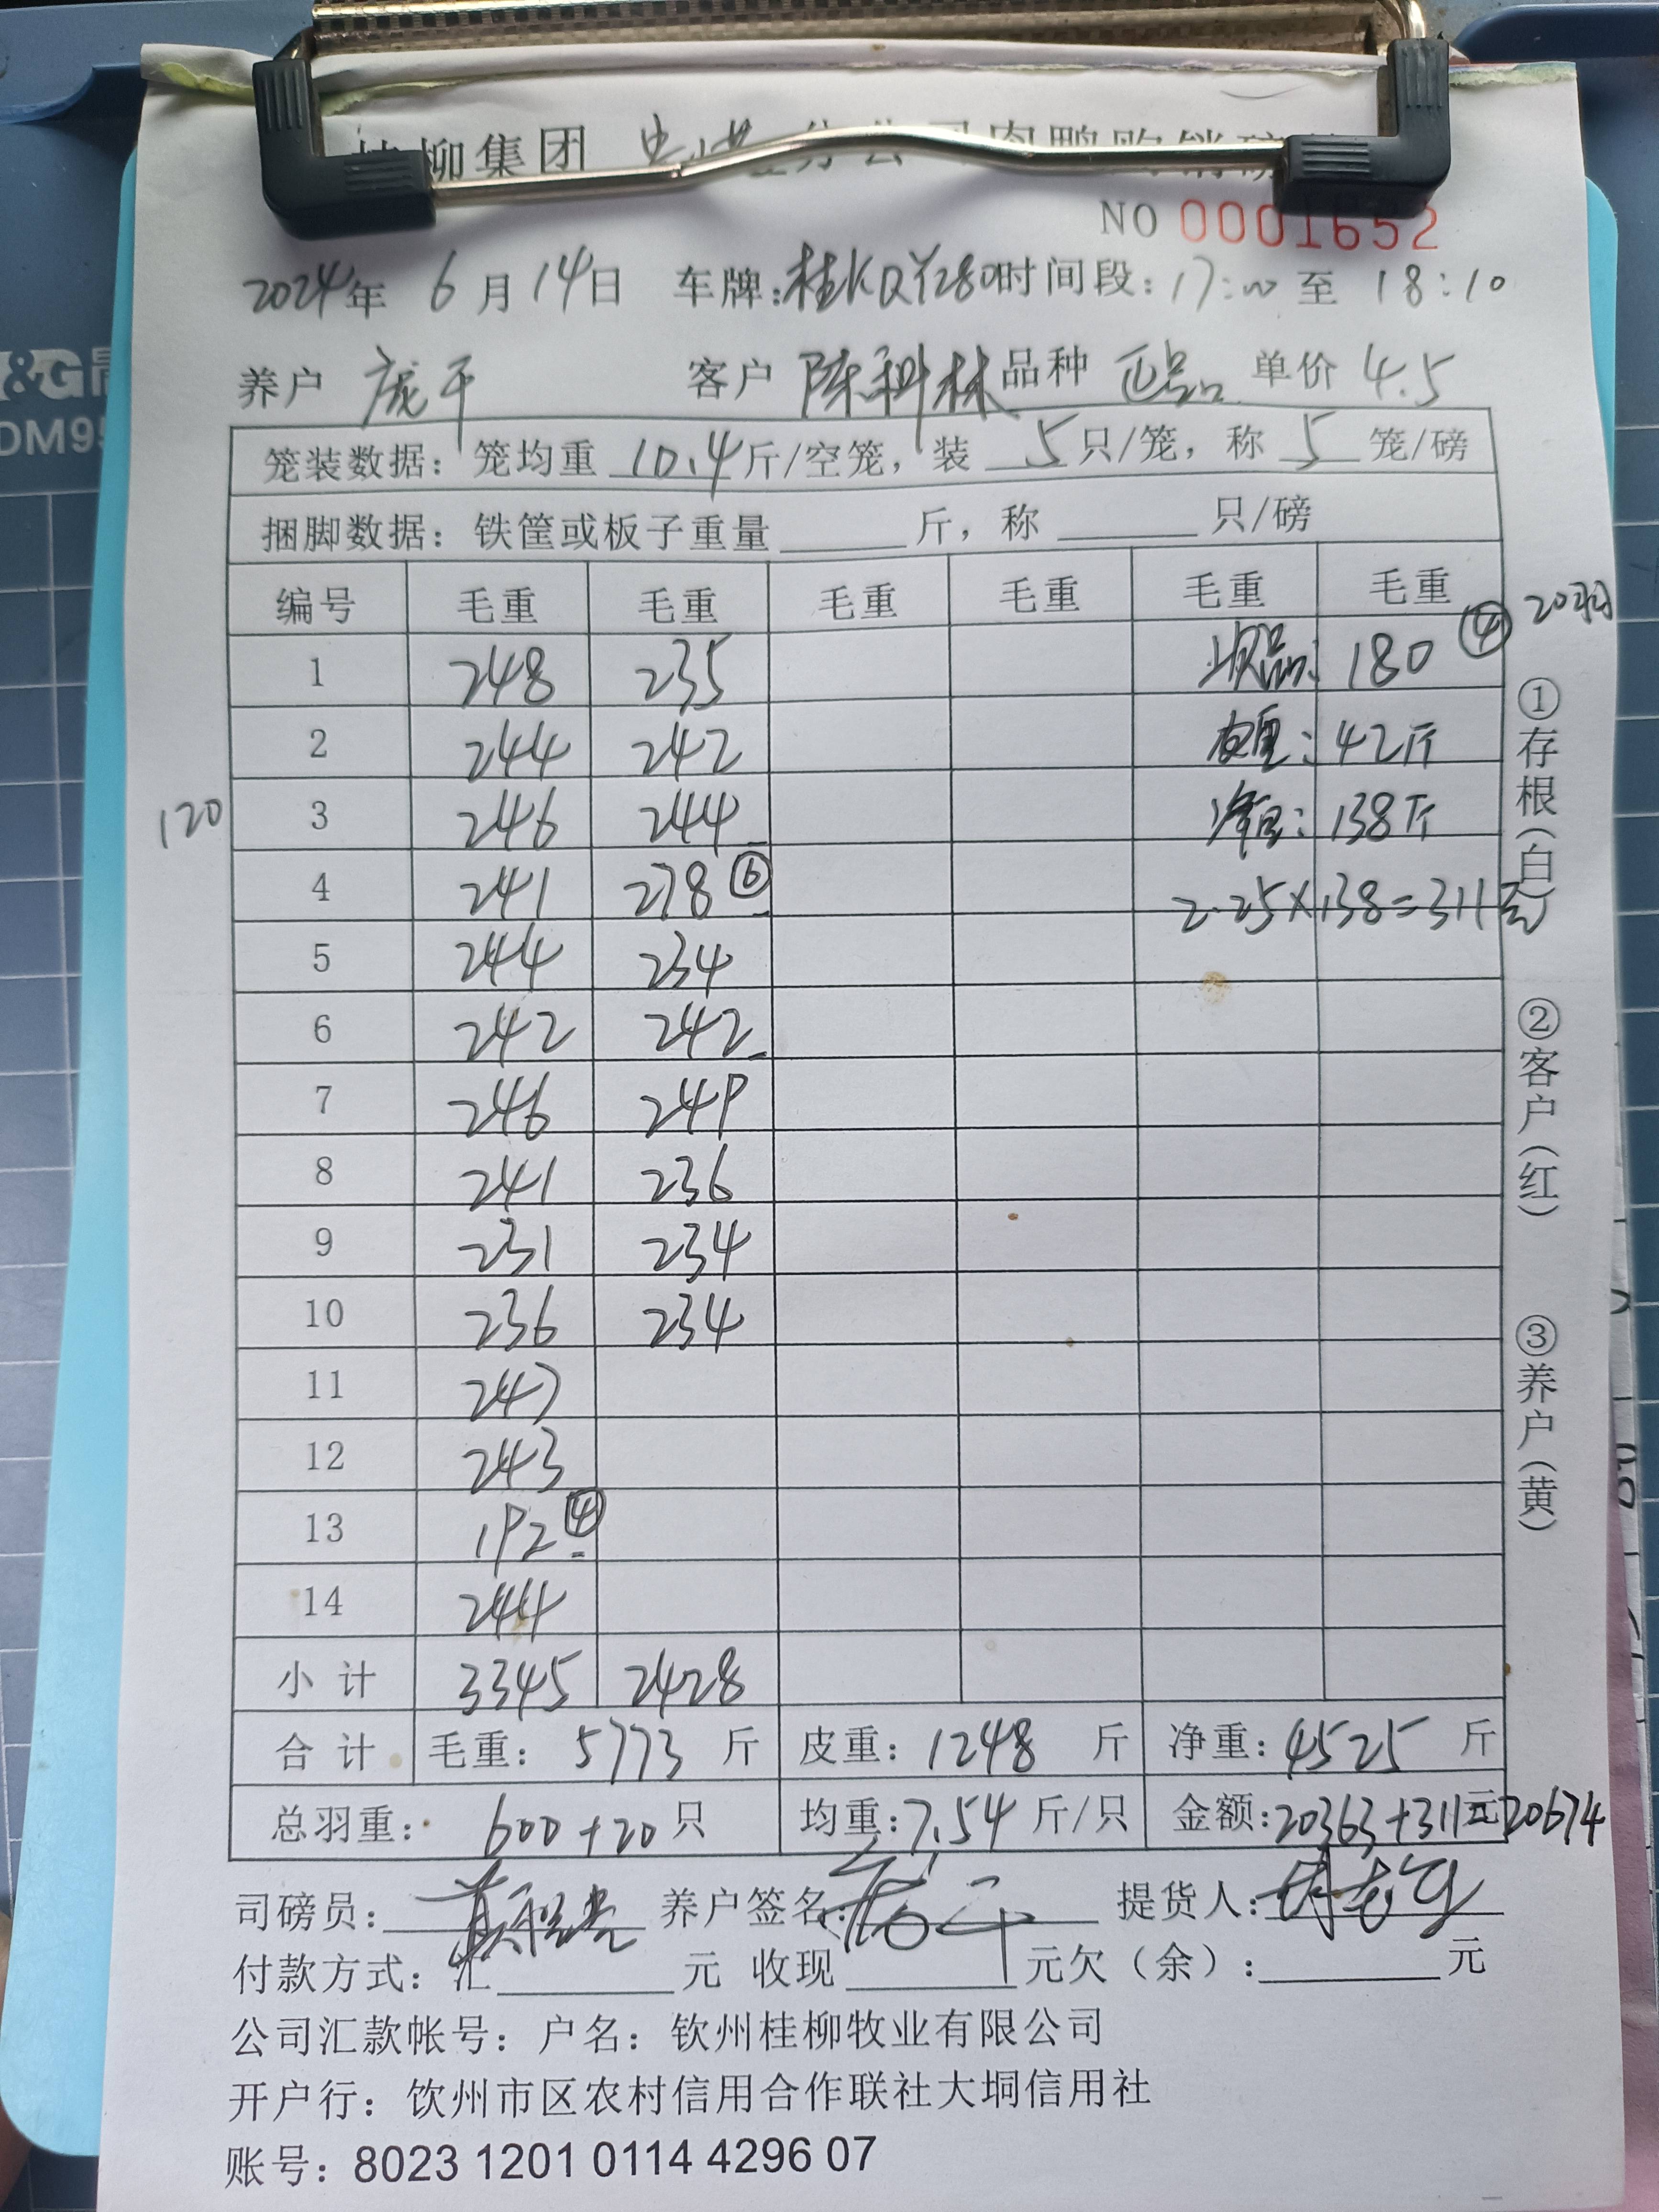 柳集团
NO 0001652
2024年 6月14日 车牌:桂KQY280 时间段:17:00至18:10
养户 庞干 客户 陈科林 品种 正品 单价 4.5
笼装数据: 笼均重 10.4斤/空笼, 装 5只/笼, 称 5 笼/磅
捆脚数据: 铁筐或板子重量 斤, 称 只/磅
编号 毛重 毛重 毛重 毛重 毛重 毛重 20羽
1 248 235 次品: 180 ④
2 244 242 皮重: 42斤
120 3 246 244 净重: 138斤
4 241 278 ⑥ 2.25×138=311元
5 244 234
6 242 242
7 246 249
8 241 236
9 231 234
10 236 234
11 247
12 243
13 192 ④
14 244
小计 3345 2428
合计 毛重: 5773 斤 皮重: 1248 斤 净重: 4525 斤
总羽重: 600+20只 均重: 7.54 斤/只 金额: 20363+311元 20674
司磅员: 养户签名: 提货人:
付款方式: 汇 元 收现 元欠(余): 元
公司汇款帐号: 户名: 钦州桂柳牧业有限公司
开户行: 钦州市区农村信用合作联社大垌信用社
账号: 8023 1201 0114 4296 07
①存根(白)
②客户(红)
③养户(黄)
&G
DM95